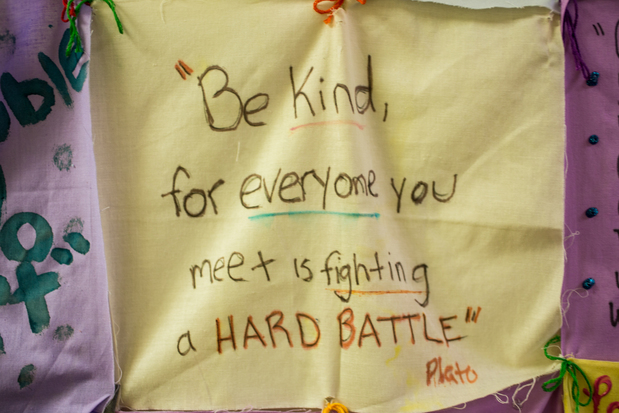 "Be Kind,
for everyone you
meet is fighting
a HARD BATTLE"
Plato